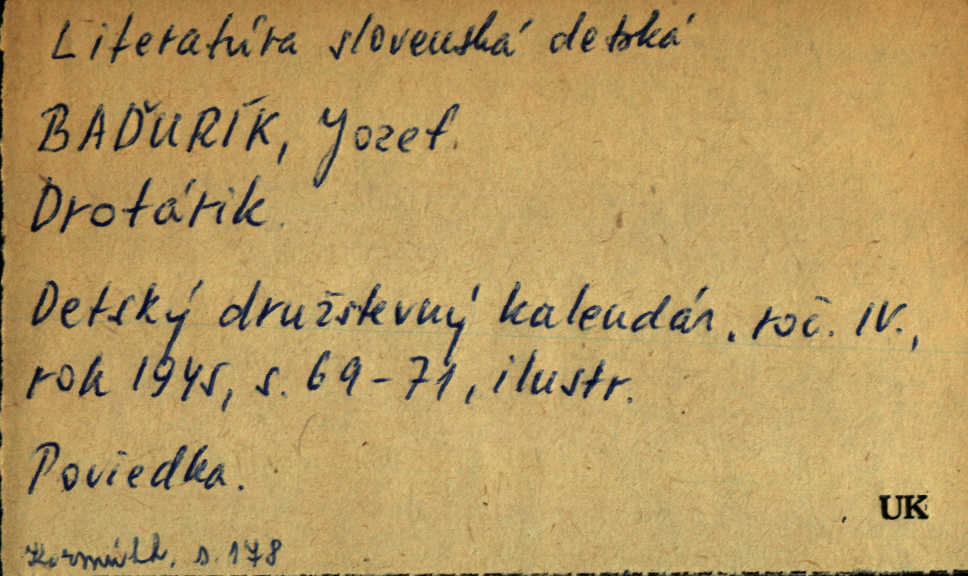 Literatúra slovenská detská
BAĎURÍK, Jozef.
Drotárik.
Detský družstevný kalendár, roč. IV.,
rok 1945, s. 69-71, ilustr.
Poviedka.
UK
s. 178